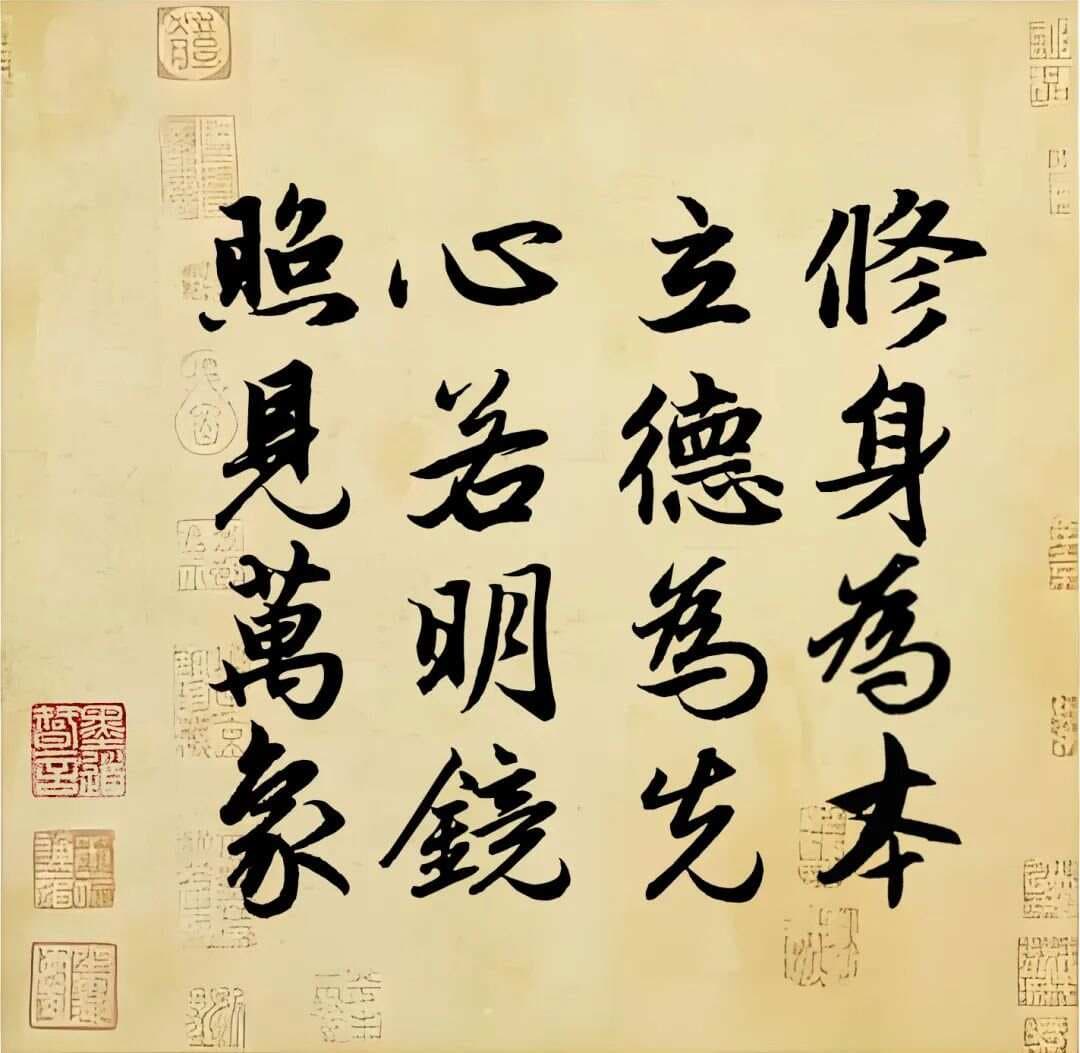 修身為本
立德為先
心若明鏡
照見萬象